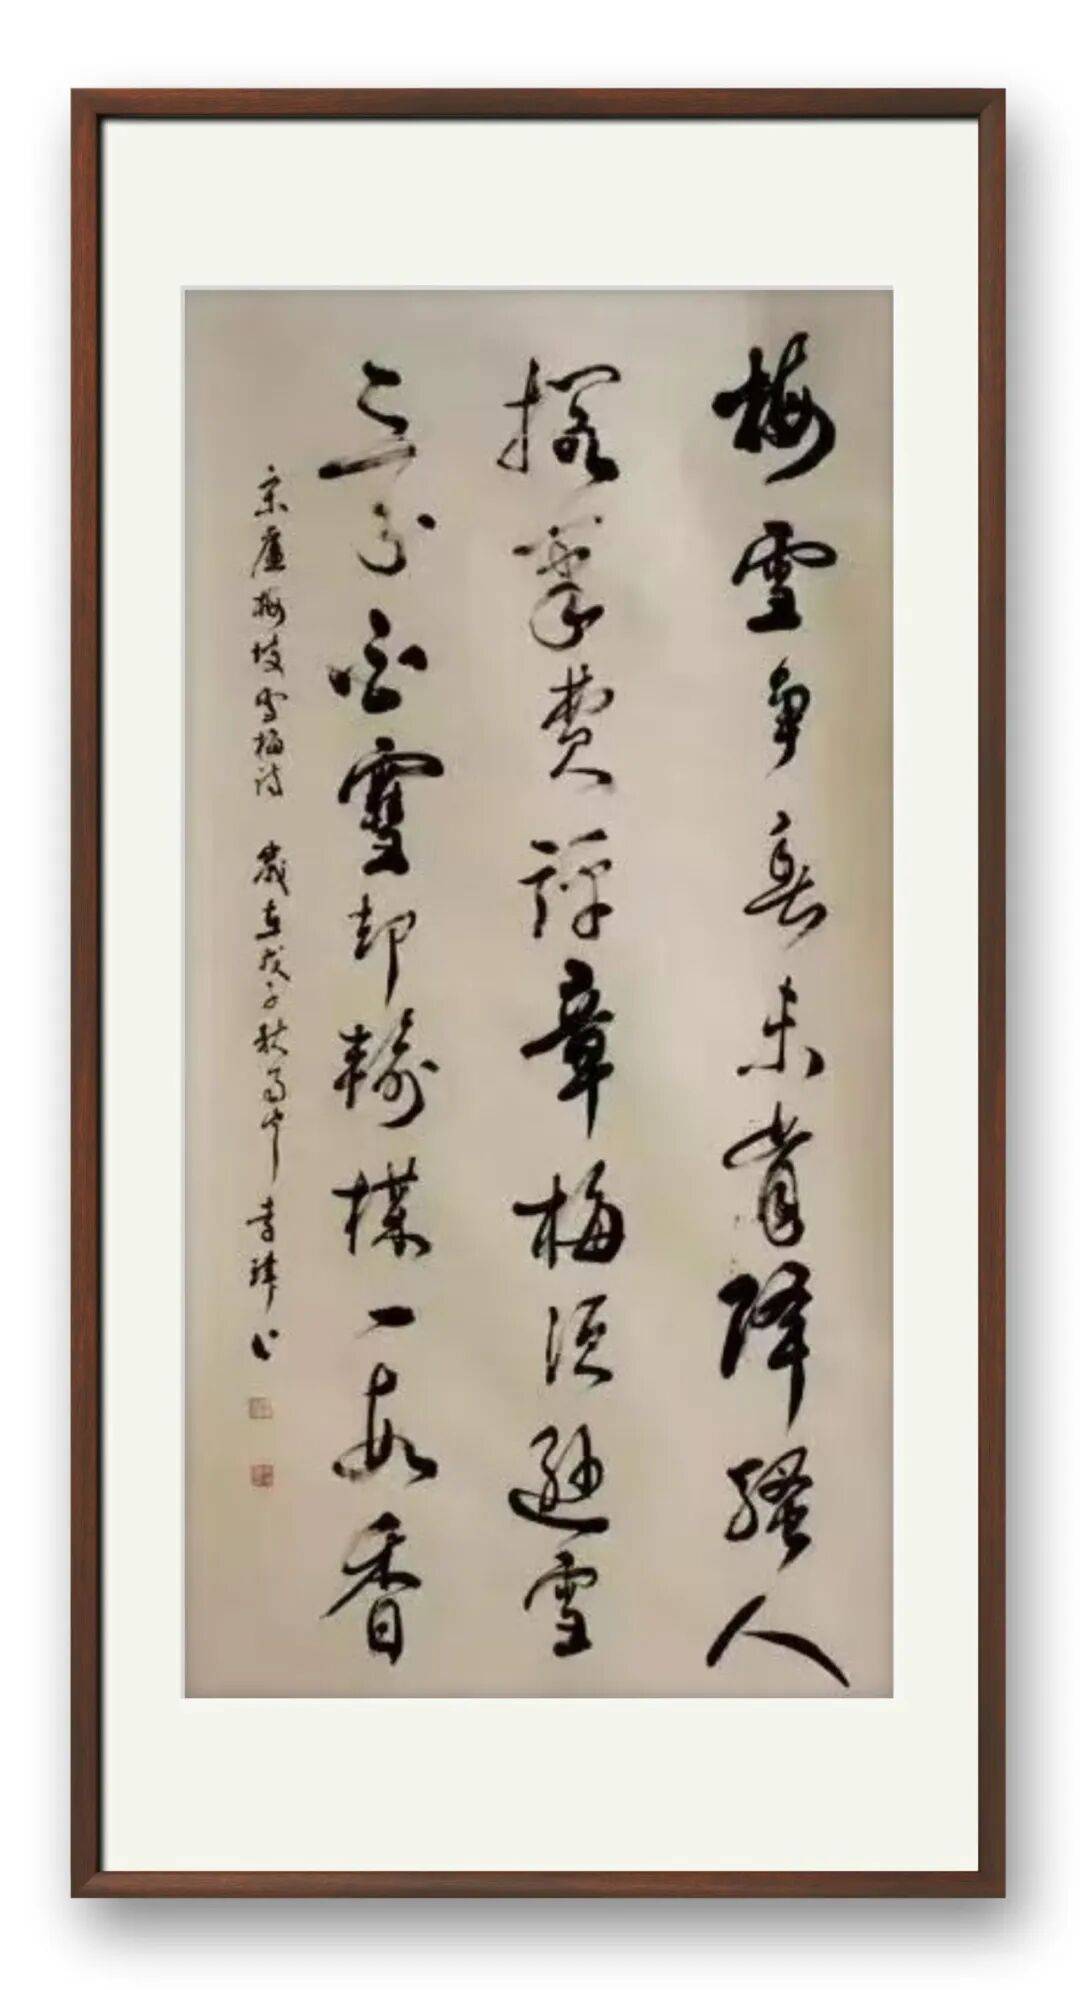 梅雪争春未肯降骚人
搁笔费评章梅须逊雪
三分白雪却输梅一段香
宋卢梅坡雪梅诗 岁在戊子秋月中 李